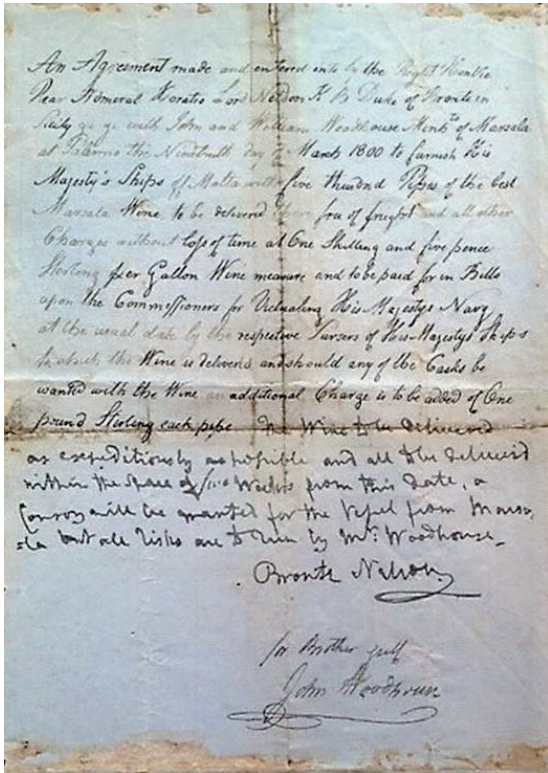 An Agreement made and entered into by the Right Honble
Rear Admiral Horatio Lord Nelson K B Duke of Bronte in
Sicily with John and William Woodhouse Merchts of Marsala
at Palermo the Nineteenth day of March 1800 to furnish His
Majesty's Ships off Malta with five hundred Pipes of the best
Marsala Wine to be delivered there free of freight and all other
Charges without loss of time at One Shilling and five pence
Sterling per Gallon Wine measure and to be paid for in Bills
upon the Commissioners for Victualing His Majestys Navy
at the usual date by the respective Pursers of His Majestys Ships
to which the Wine is delivered and should any of the Casks be
wanted with the Wine an additional Charge is to be added of One
pound Sterling each pipe The Wine to be delivered
as expeditiously as possible and all to be delivered
within the space of five Weeks from this date, a
Convoy will be granted for the Vessel from Marsa
=la but all risks are to run by Mr. Woodhouse_
Bronte Nelson
for Brother self
John Woodhouse